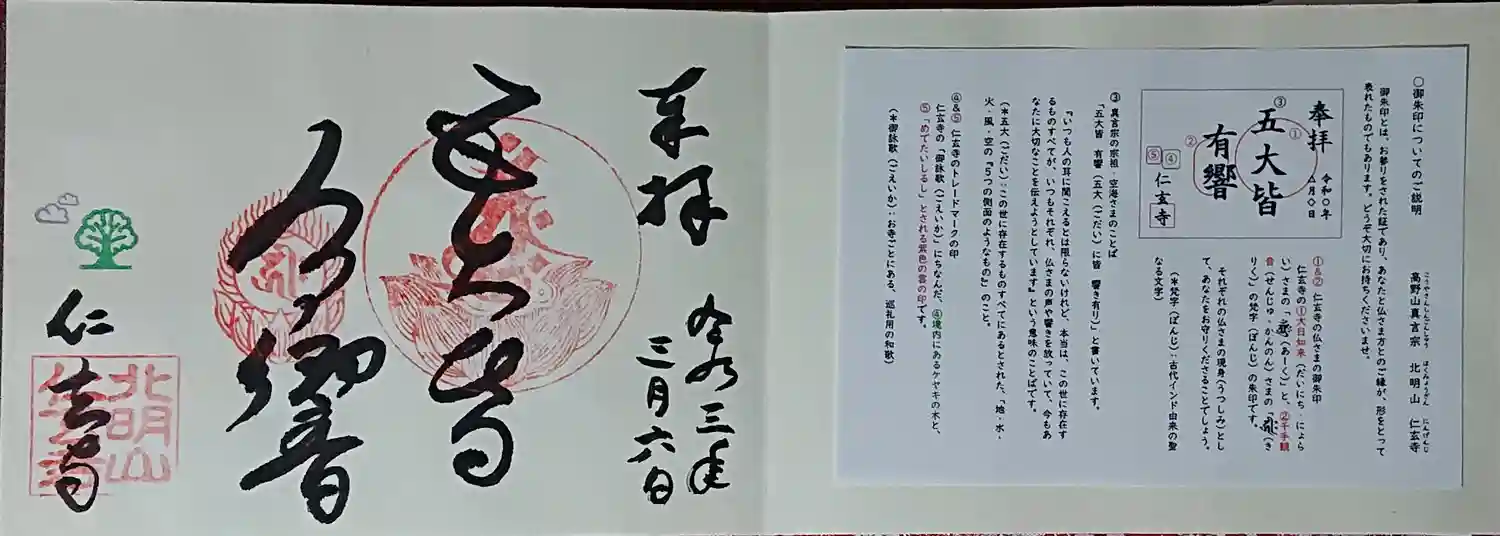 ○御朱印についてのご説明
高野山真言宗 北明山 仁玄寺
こうやさんしんごんしゅう ほくみょうざん にんげんじ
御朱印とは、お参りをされた証であり、あなたと仏さま方とのご縁が、形をとって
表れたものでもあります。どうぞ大切にお持ちくださいませ。
奉拝
令和〇年
△月〇日
③
五大皆
①
有響
②
仁玄寺
④
⑤
①&② 仁玄寺の仏さまの御朱印
仁玄寺の①大日如来(だいにち・にょら
い)さまの「(あーく)」と、②千手観
音(せんじゅ・かんのん)さまの「(き
りく)」の梵字(ぼんじ)の朱印です。
それぞれの仏さまの現身(うつしみ)とし
て、あなたをお守りくださることでしょう。
(※梵字(ぼんじ):古代インド由来の聖
なる文字)
③ 真言宗の宗祖・空海さまのことば
「五大皆 有響(五大(ごだい)に皆 響き有り)」と書いています。
『いつも人の耳に聞こえるとは限らないけれど、本当は、この世に存在す
るものすべてが、いつもそれぞれ、仏さまの声や響きを放っていて、今もあ
なたに大切なことを伝えようとしています』という意味のことばです。
(※五大(ごだい):この世に存在するものすべてにあるとされた、「地・水・
火・風・空の『5つの側面のようなもの』のこと。
④&⑤ 仁玄寺のトレードマークの印
仁玄寺の「御詠歌(ごえいか)」にちなんだ、④境内にあるケヤキの木と、
⑤「めでたいしるし」とされる紫色の雲の印です。
(※御詠歌(ごえいか):お寺ごとにある、巡礼用の和歌)
奉拝
令和三年
三月六日
五大皆
有響
仁玄寺
北明山
仁玄寺